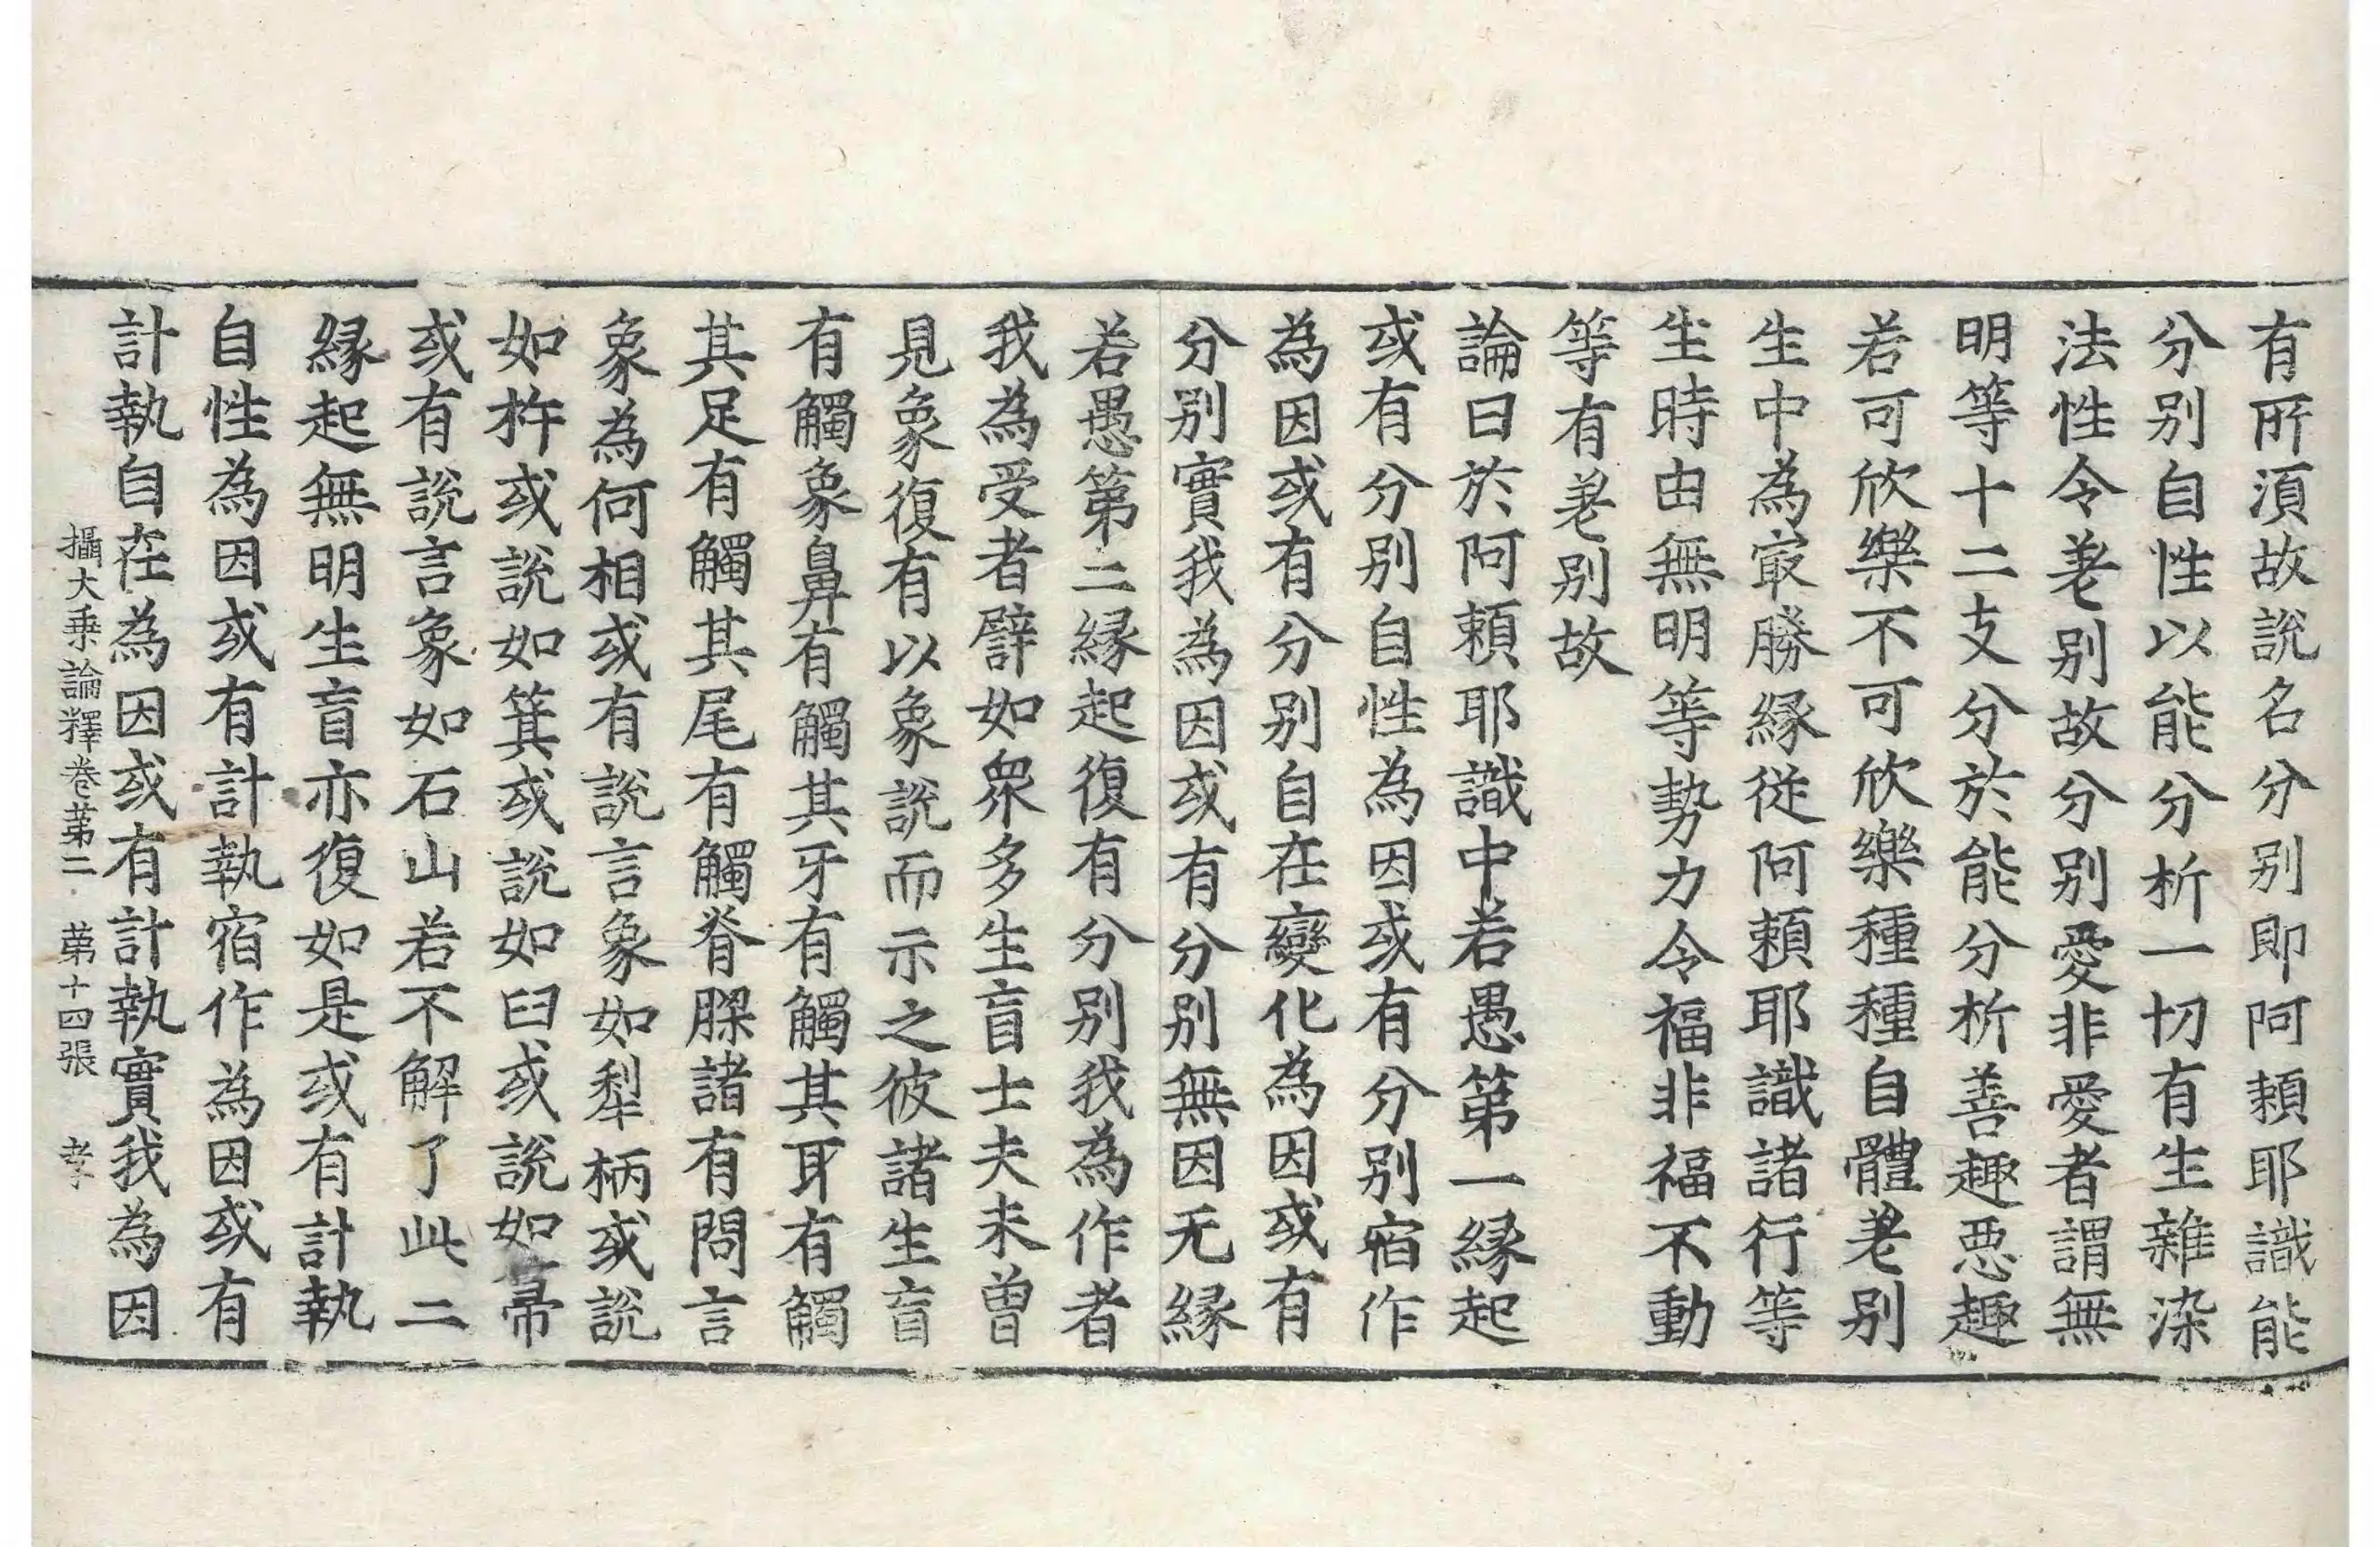 有所湏故說名分别即阿頼耶識能
分别自性以能分析一切有生雜染
法性令差别故分别愛非愛者謂無
明等十二支分於能分析善趣悪趣
若可欣樂不可欣樂種種自體差别
生中為㝡勝縁從阿頼耶識諸行等
生時由無明等勢力令福非福不動
等有差别故
論曰於阿頼耶識中若愚第一縁起
或有分别自性為因或有分别宿作
為因或有分别自在變化為因或有
分别實我為因或有分别無因无縁
若愚第二縁起復有分别我為作者
我為受者譬如衆多生盲士夫未曽
見象復有以象說而示之彼諸生盲
有觸象鼻有觸其牙有觸其耳有觸
其足有觸其尾有觸脊𦡀諸有問言
象為何相或有說言象如犁柄或說
如杵或說如箕或說如臼或說如帚
或有說言象如石山若不解了此二
縁起無明生盲亦復如是或有計執
自性為因或有計執宿作為因或有
計執自在為因或有計執實我為因
攝大乗論釋卷苐二 苐十四張 孝